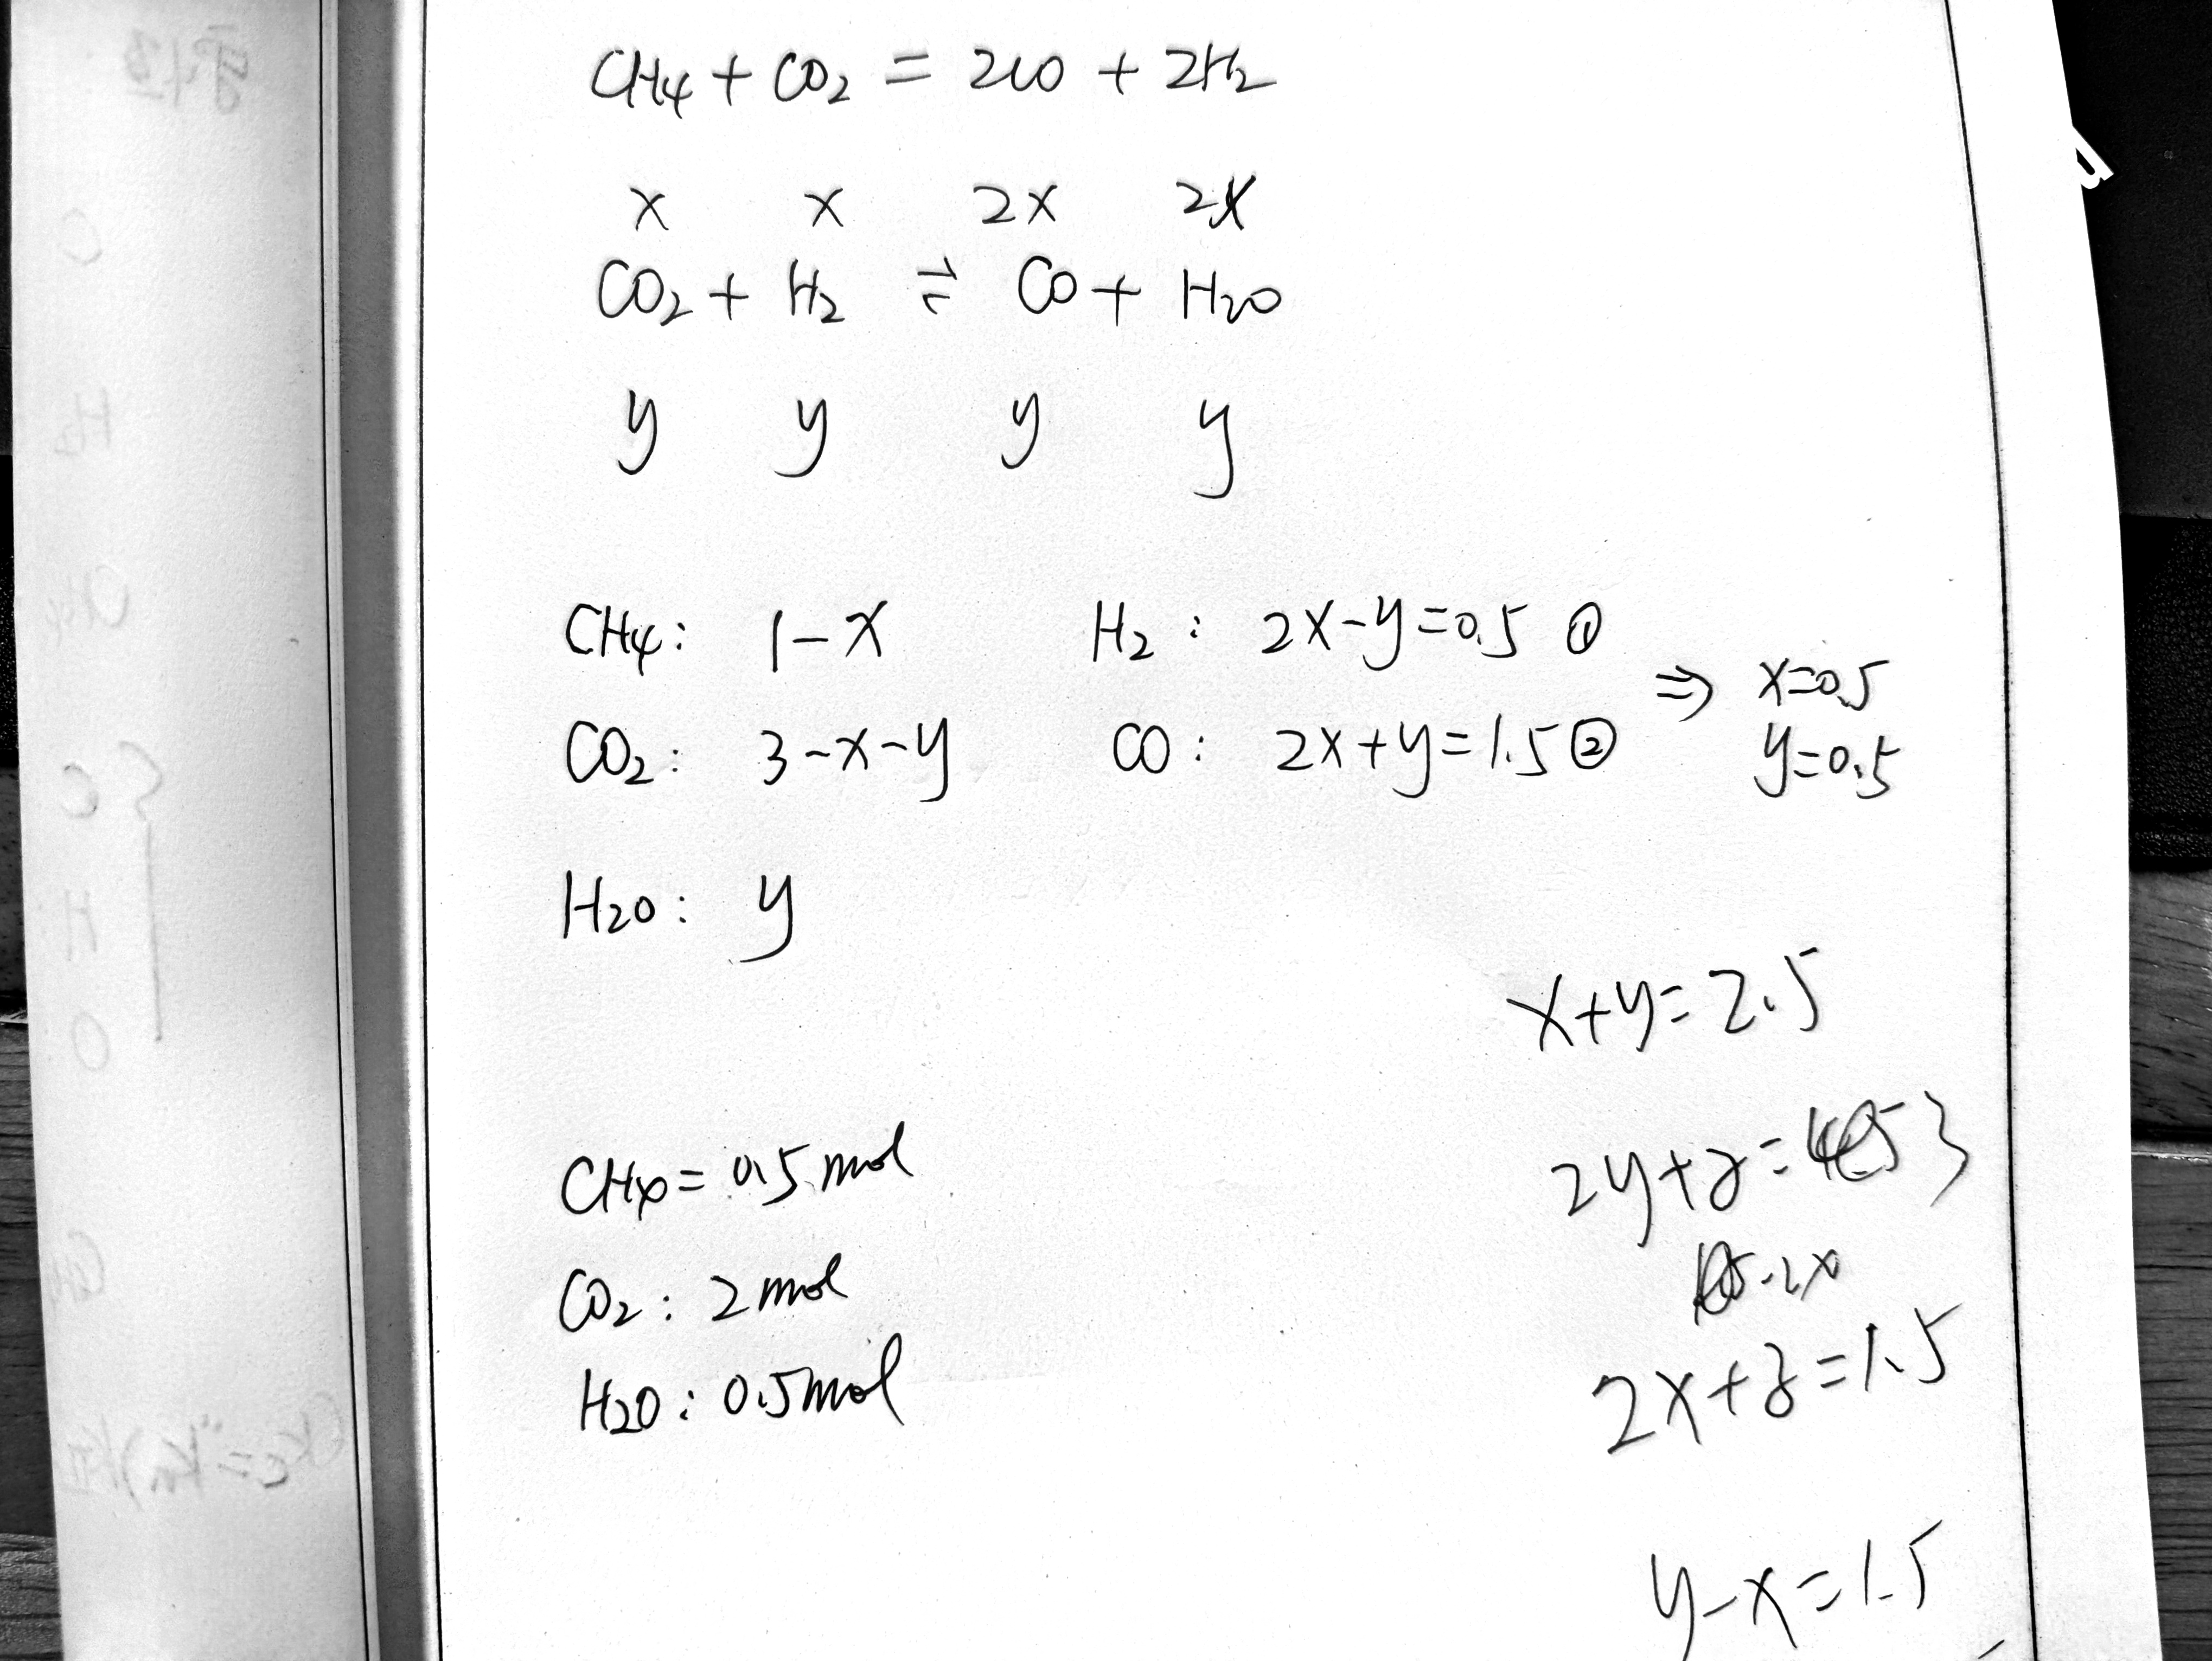 CH4 + CO2 = 2CO + 2H2
x x 2x 2x
CO2 + H2 ⇌ CO + H2O
y y y y
CH4: 1-x H2: 2x-y=0.5 ①
⇒ x=0.5
CO2: 3-x-y CO: 2x+y=1.5 ②
y=0.5
H2O: y
x+y=2.5
CH4= 0.5mol
2y+z= 3
CO2: 2mol
-2x
H2O: 0.5mol
2x+z=1.5
y-x=1.5